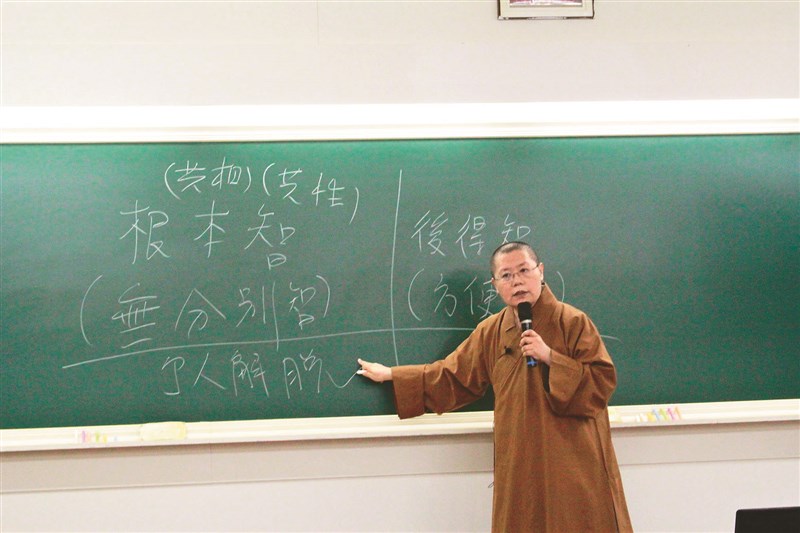 (共相)(共性)
根本智
(無分別智)
人解脫
後得智
(方便 )